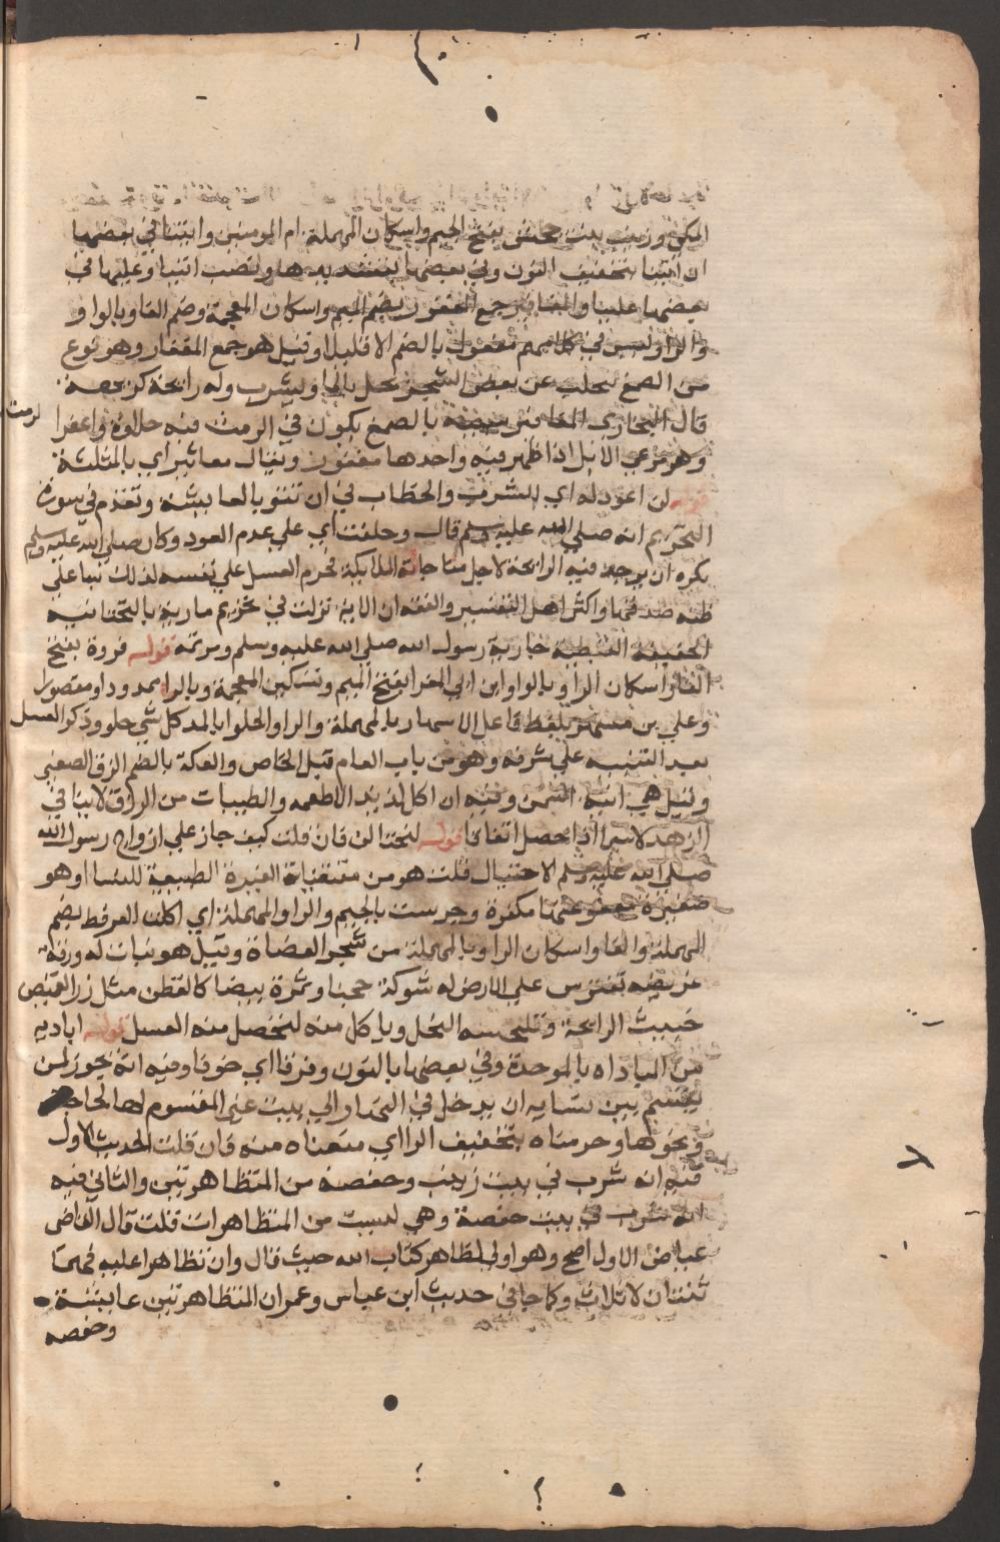 المكي وزينب بنت جحش بفتح الجيم واسكان المهملة ام المومنين وايتنا في بعضها
ان ايتنا بتخفيف النون وفي بعضها بتشديدها ونصب ايتنا وعليها في
بعضها علينا والمغافير جمع المغفور بضم الميم واسكان المعجمة وضم الفا وبالواو
والرا وليس في كلامهم مفعول بالضم الا قليلا وقيل هو جمع المغفار وهو نوع
من الصمغ يتحلب عن بعض الشجر يحل بالما ويشرب وله رائحة كريهة
قال البخاري المغافير شبيه بالصمغ يكون في الرمث فيه حلاوة واغفر الرمث
وهو مرعى الابل اذا ظهر فيه واحدها مغفور ويقال مغاثير اي بالمثلثة
قوله لن اعود له اي للشرب والخطاب في ان تتوبا لعايشة وتقدم في سورة
التحريم انه صلى الله عليه وسلم قال وحلفت اي على عدم العود وكان صلى الله عليه وسلم
يكره ان يوجد فيه الرائحة لاجل مناجاة الملايكة فحرم العسل على نفسه لذلك بنا على
ظنه صدقهما واكثر اهل التفسير والفقه ان الاية نزلت في تحريم مارية بالتحتانية
الخفيفة القبطية جارية رسول الله صلى الله عليه وسلم وسريته قوله فروة بفتح
الفا واسكان الرا وبالواو ابن ابي المغرا بفتح الميم وتسكين المعجمة وبالرا ممدودا ومقصورا
وعلي بن مسهر بلفظ فاعل الاسهار بالمهملة والرا والحلوا بالمد كل شي حلو وذكر العسل
بعد التنبيه على شرفه وهو من باب العام قبل الخاص والعكة بالضم الزق الصغير
وقيل هي انية السمن وفيه ان اكل لذيذ الاطعمة والطيبات من الرزق لا ينافي
الزهد لاسيما اذا حصل اتفاقا قوله لنحتالن فان قلت كيف جاز على ازواج رسول الله
صلى الله عليه وسلم الاحتيال قلت هو من مقتضيات الغيرة الطبيعية للنسا او هو
صغيرة معفو عنها مكفرة وجرست بالجيم والرا والمهملة اي اكلت العرفط بضم
المهملة والفا واسكان الرا وبالمهملة من شجر العضاة وقيل هو نبات له ورقة
عريضة تفترش على الارض له شوكة حجنا وثمرة بيضا كالقطن مثل زر القميص
خبيث الرائحة وتلحسه النحل وياكل منه ليحصل منه العسل قوله اباديه
من المباداه بالموحدة وفي بعضها بالنون وفرقا اي خوفا وفيه انه يجوز لمن
يقسم بين نسايه ان يدخل في النهار الي بيت غير المقسوم لها لحاجة
ونحوها وحرمناه بتخفيف الرا اي منعناه منه فان قلت الحديث الاول
فيه انه شرب في بيت زينب وحفصة من المتظاهرتين والثاني فيه
انه شرب في بيت حفصة وهي ليست من المتظاهرات قلت قال القاضي
عياض الاول اصح وهو اولى لظاهر كتاب الله حيث قال وان تظاهرا عليه فهما
ثنتان لا ثلاث وكما جا في حديث ابن عباس وعمر ان المتظاهرتين عايشة
وحفصه